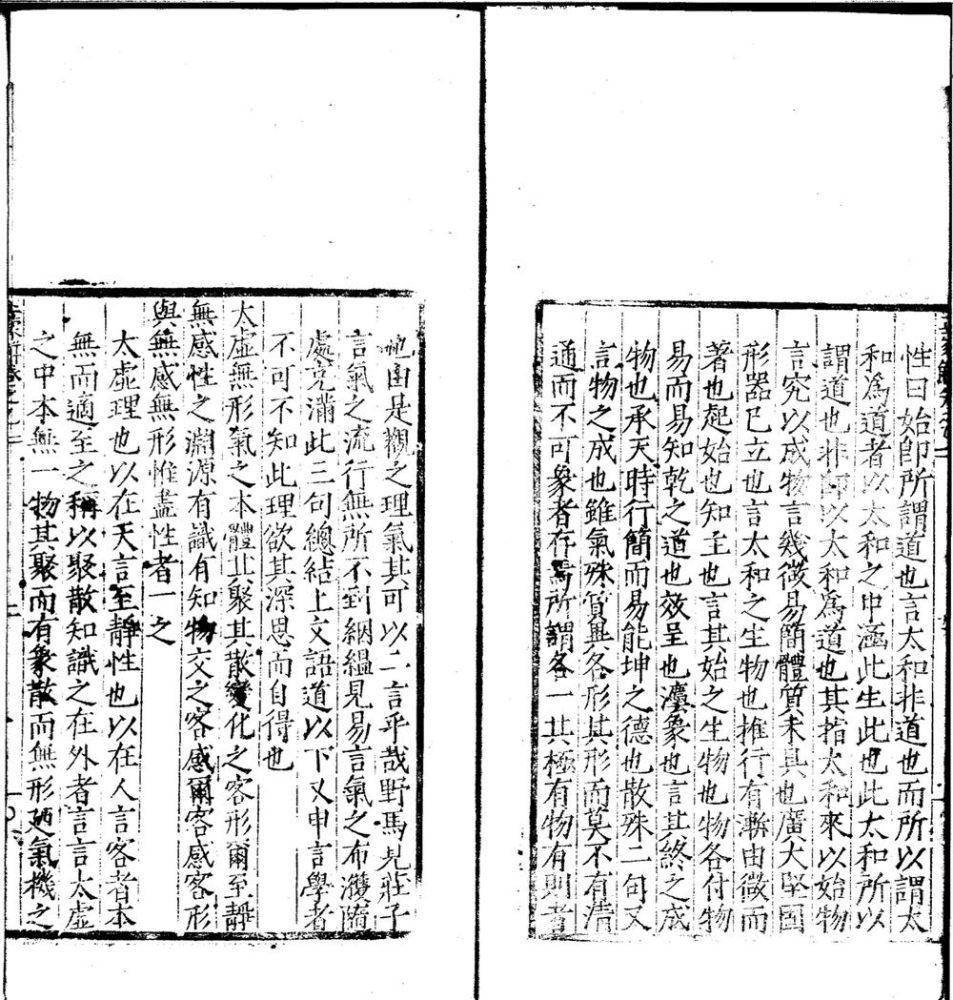 性曰始即所謂道也言太和非道也而所以謂太
和為道者以太和之中涵此生此也此太和所以
謂道也非即以太和為道也其指太和來以始物
言究以成物言幾微易簡體質未具也廣大堅固
形器已立也言太和之生物也推行有漸由微而
著也起始也知主也言其始之生物也物各付物
易而易知乾之道也效呈也灋象也言其終之成
物也承天時行簡而易能坤之德也散殊二句又
言物之成也雖氣殊質異各形其形而莫不有清
通而不可象者存焉所謂各一其極有物有則者
也由是觀之理氣其可以二言乎哉野馬見莊子
言氣之流行無所不到絪縕見易言氣之布濩隨
處充滿此三句總結上文語道以下又申言學者
不可不知此理欲其深思而自得也
太虛無形氣之本體其聚其散變化之客形爾至靜
無感性之淵源有識有知物交之客感爾客感客形
與無感無形惟盡性者一之
太虛理也以在天言至靜性也以在人言客者本
無而適至之稱以聚散知識之在外者言言太虛
之中本無一物其聚而有象散而無形廼氣機之